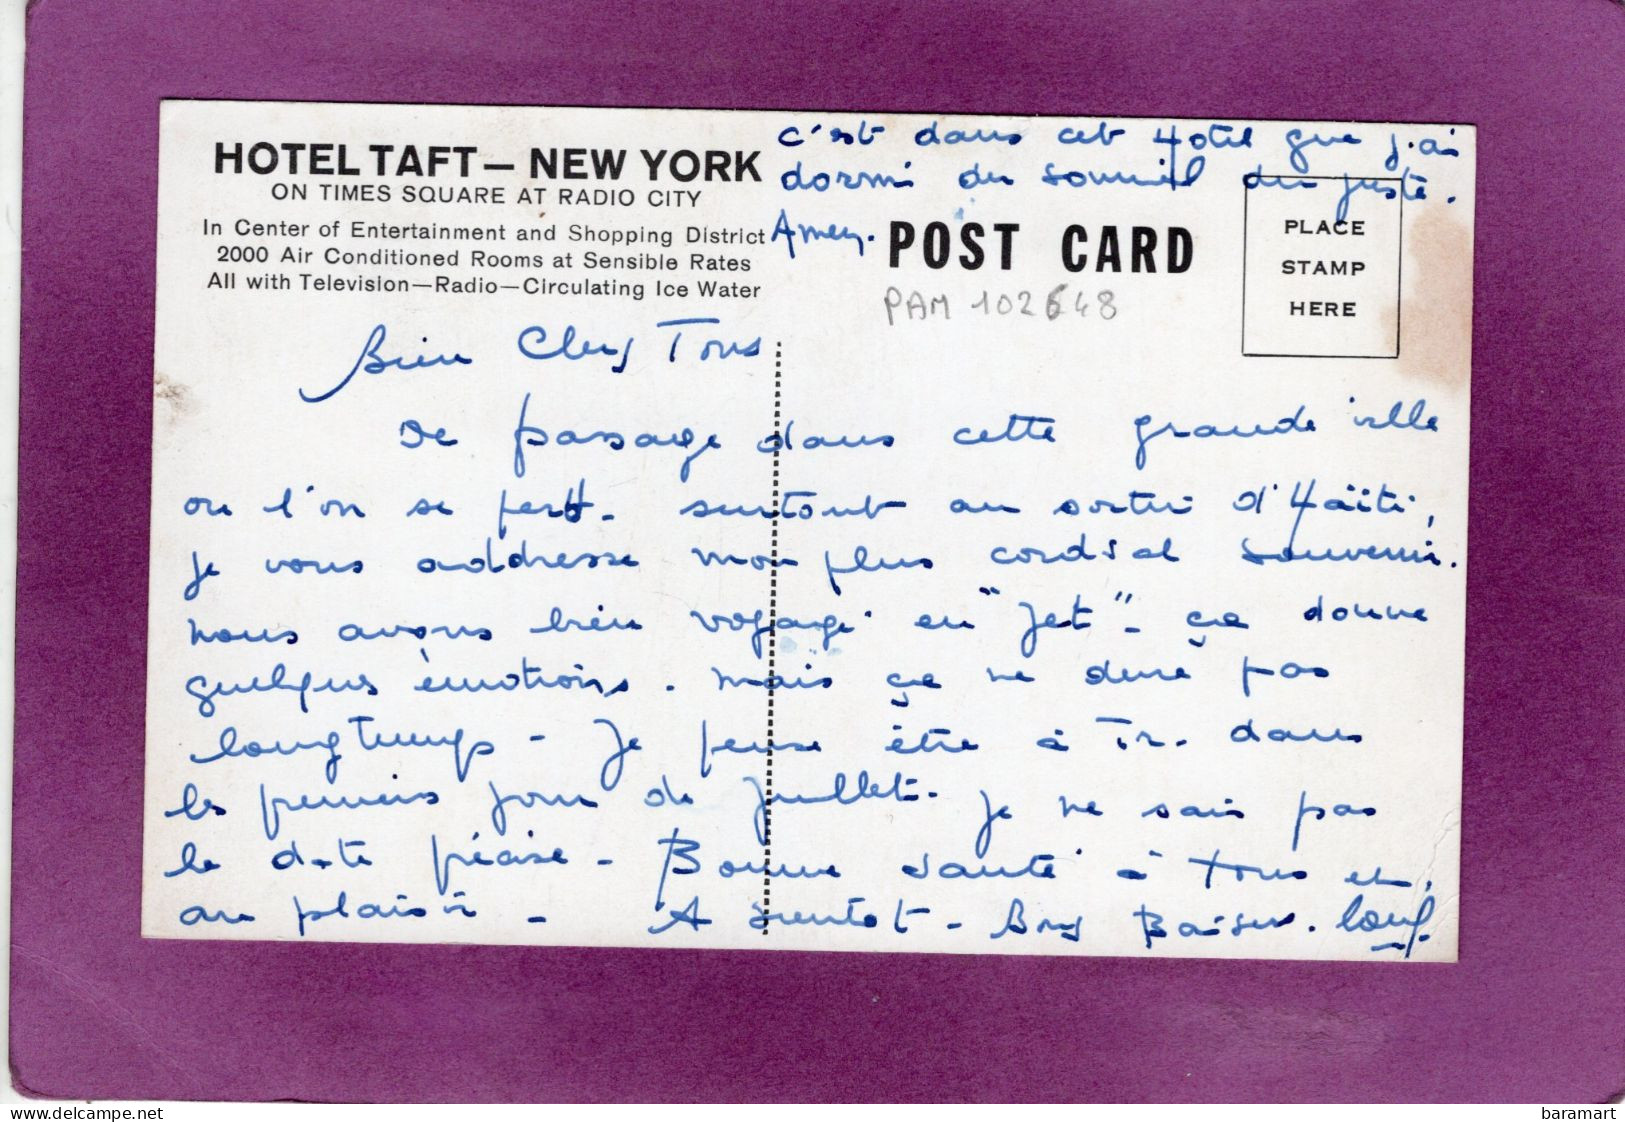 HOTEL TAFT — NEW YORK
ON TIMES SQUARE AT RADIO CITY
In Center of Entertainment and Shopping District
2000 Air Conditioned Rooms at Sensible Rates
All with Television—Radio—Circulating Ice Water
c'est dans cet Hotel que j'ai
dormi du sommeil du juste.
Amen.
POST CARD
PLACE
STAMP
HERE
PAM 102648
Bien Chers Tous
De passage dans cette grande ville
ou l'on se perd - surtout au sortir d'Haïti,
je vous addresse mon plus cordial souvenir.
nous avons bien voyagé en "Jet" - ça donne
quelques émotions. mais ça ne dure pas
longtemps - Je pense être à Tr. dans
les premiers jours de Juillet. je ne sais pas
la date précise - Bonne santé à tous et
au plaisir - A bientot - Bons Baisers.
delcampe.net
baramart